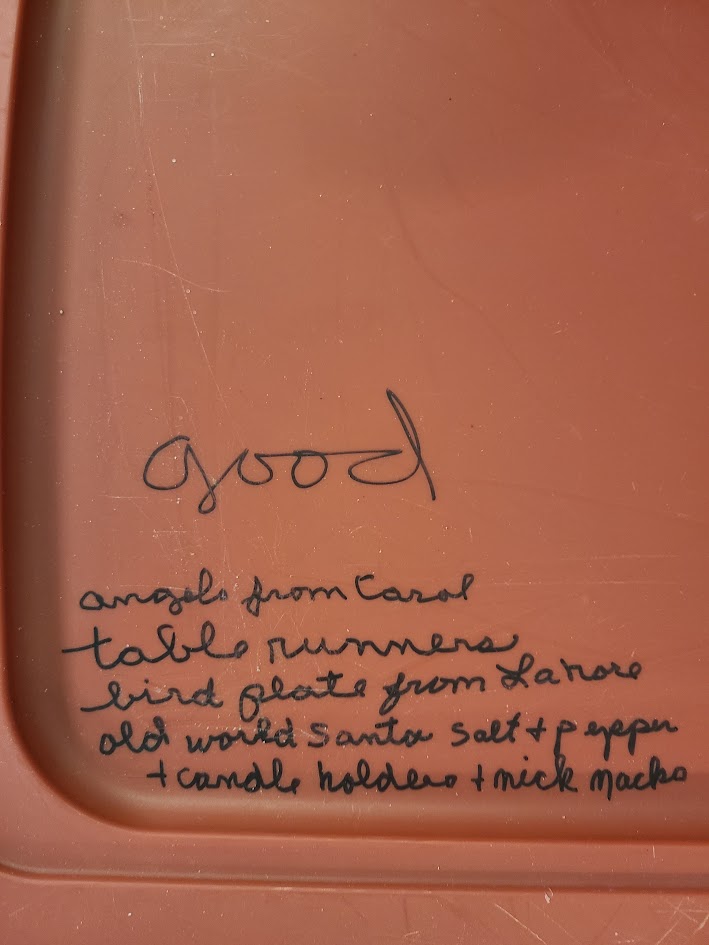 good
angels from Carol
table runners
bird plate from Lanore
old world Santa salt + pepper
+ candle holders + nick nacks